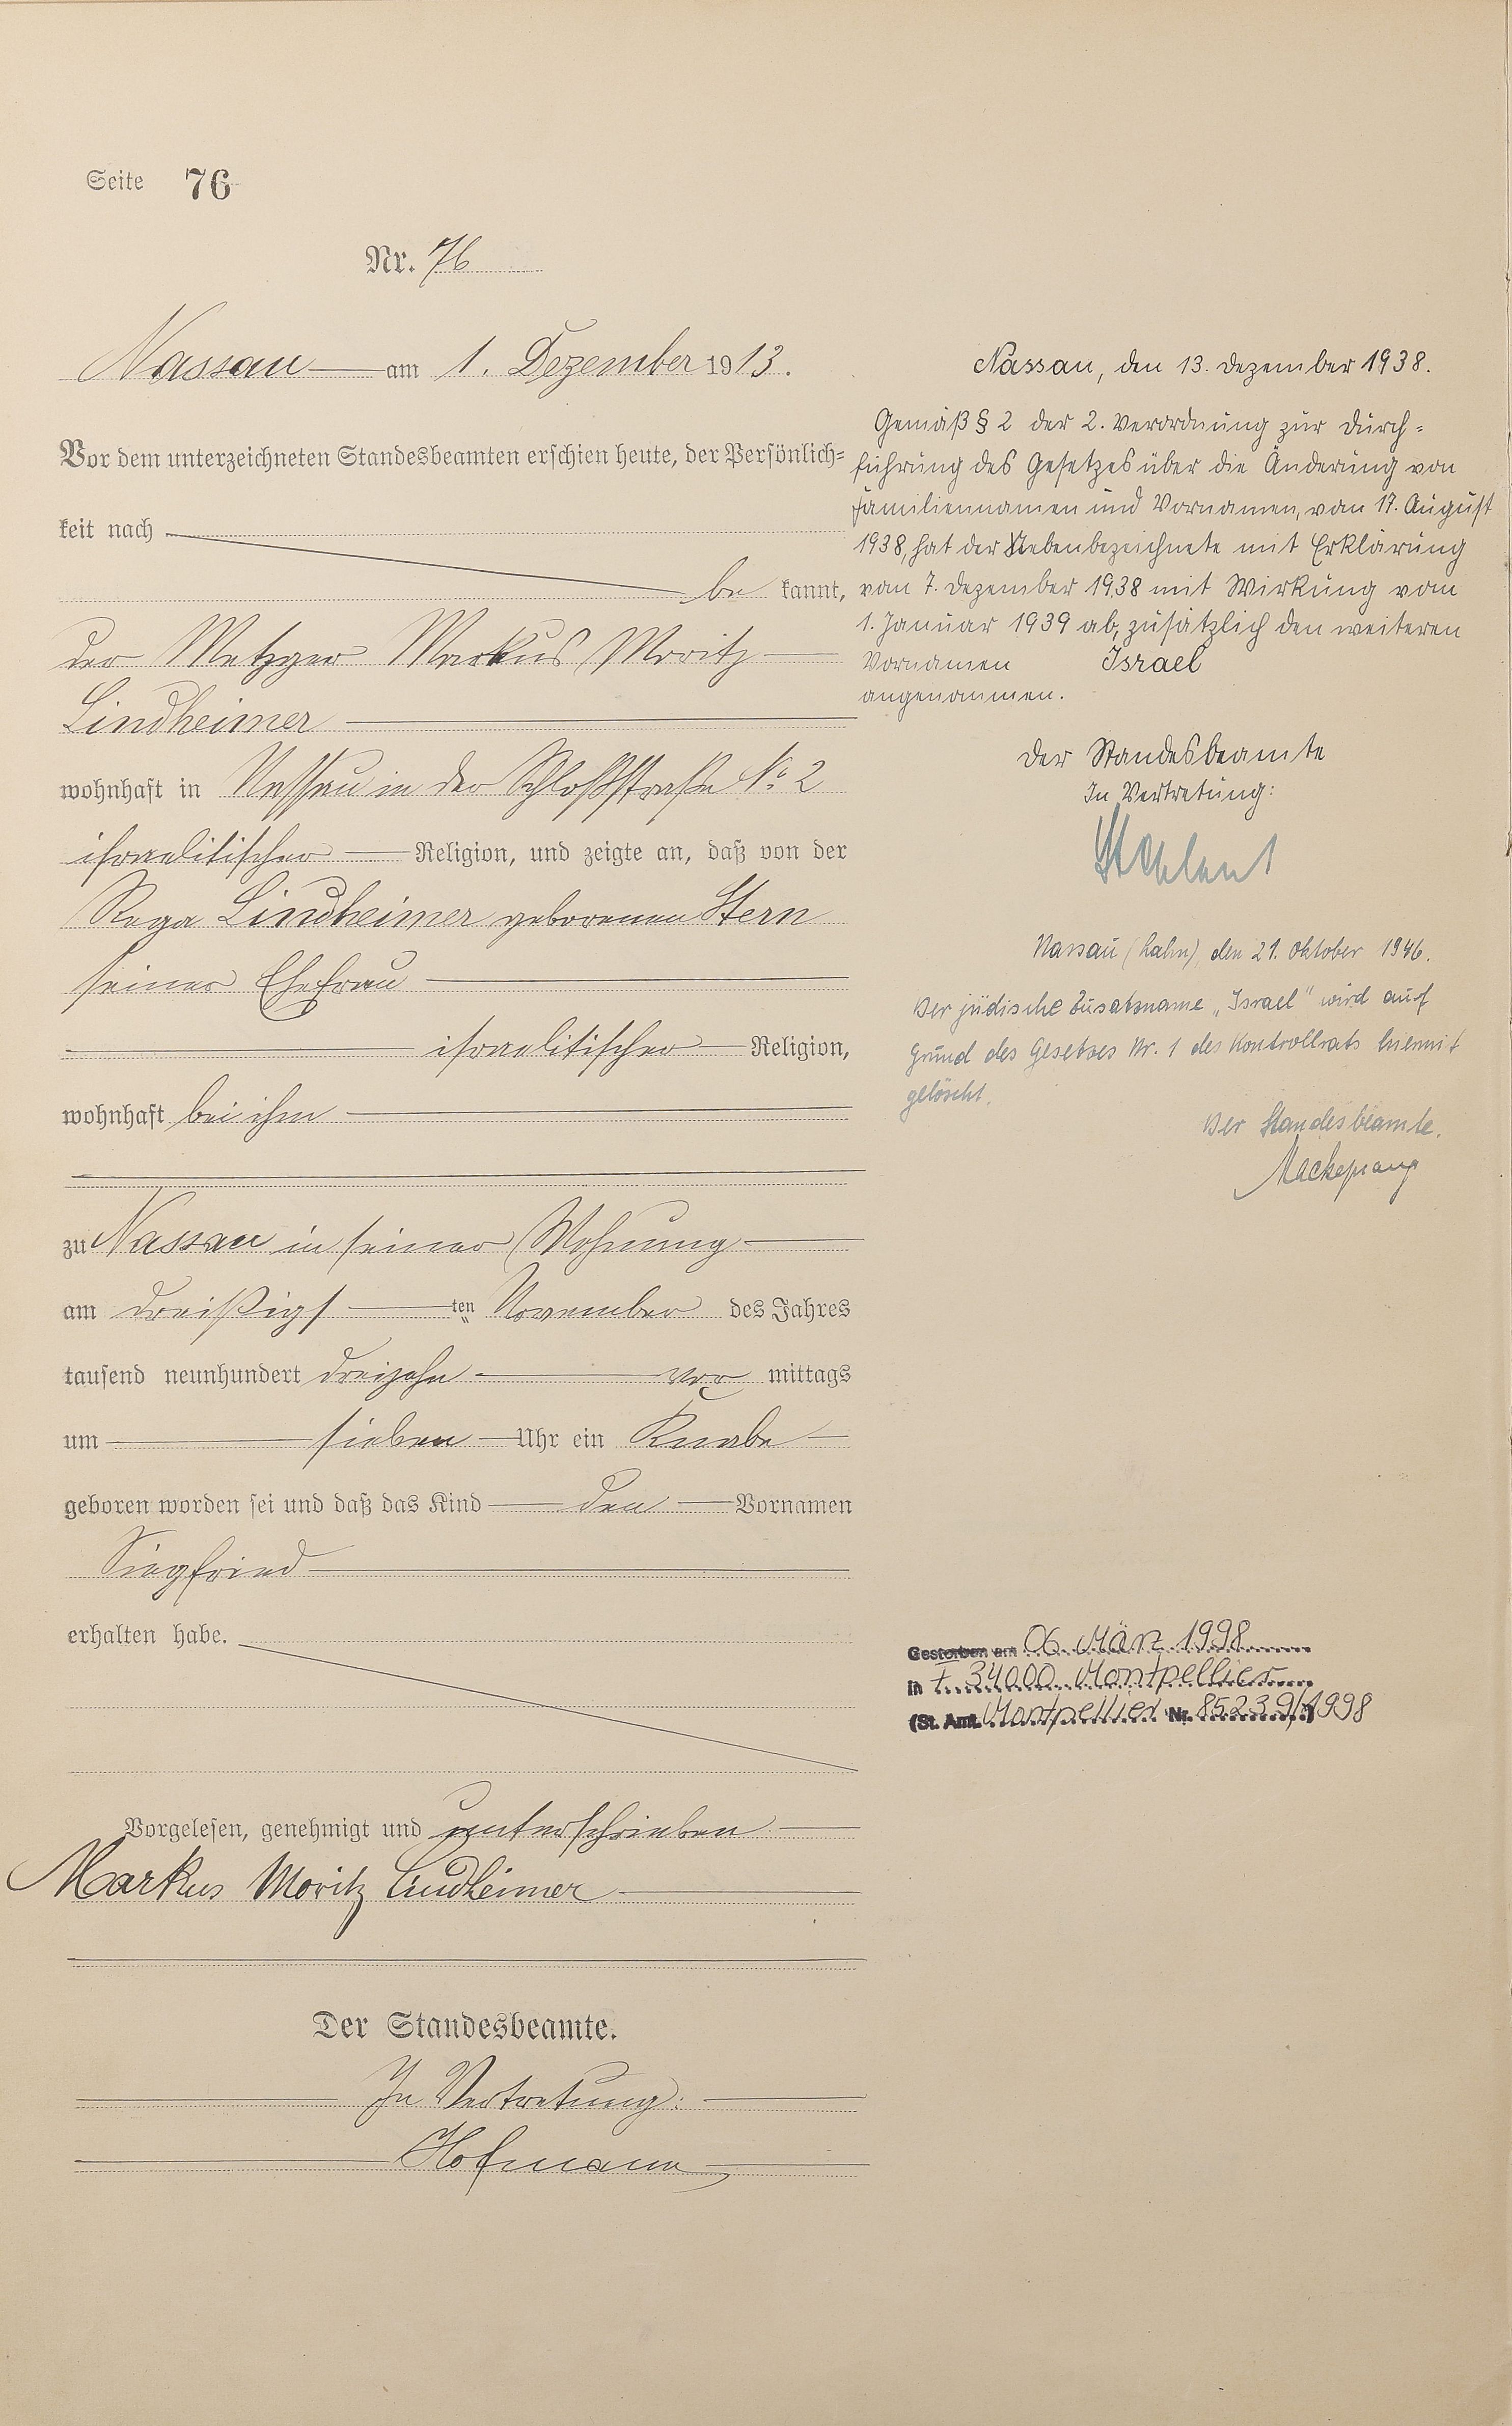 Seite 76
Nr. 76
Nassau am 1. Dezember 1913.
Vor dem unterzeichneten Standesbeamten erschien heute, der Persönlich=
keit nach
be kannt,
der Metzger Markus Moritz
Lindheimer
wohnhaft in Nassau in der Schloßstraße No 2
israelitischer Religion, und zeigte an, daß von der
Rega Lindheimer geborenen Stern
seiner Ehefrau
israelitischer Religion,
wohnhaft bei ihm
zu Nassau in seiner Wohnung
am dreißigs ten November des Jahres
tausend neunhundert dreizehn vor mittags
um sieben Uhr ein Knabe
geboren worden sei und daß das Kind den Vornamen
Siegfried
erhalten habe.
Vorgelesen, genehmigt und unterschrieben
Markus Moritz Lindheimer
Der Standesbeamte.
In Vertretung:
Hofmann
Nassau, den 13. Dezember 1938.
Gemäß § 2 der 2. Verordnung zur Durch=
führung des Gesetzes über die Änderung von
Familiennamen und Vornamen, vom 17. August
1938, hat der Nebenbezeichnete mit Erklärung
vom 7. Dezember 1938 mit Wirkung vom
1. Januar 1939 ab, zusätzlich den weiteren
Vornamen Israel
angenommen.
Der Standesbeamte
In Vertretung:
Nassau (Lahn), den 21. Oktober 1946.
Der jüdische Zusatzname „Israel" wird auf
Grund des Gesetzes Nr. 1 des Kontrollrats hiermit
gelöscht.
Der Standesbeamte.
Mackeprang
Gestorben am 06. März 1998
in F. 34000 Montpellier
(St. Amt Montpellier Nr. 85239/1998